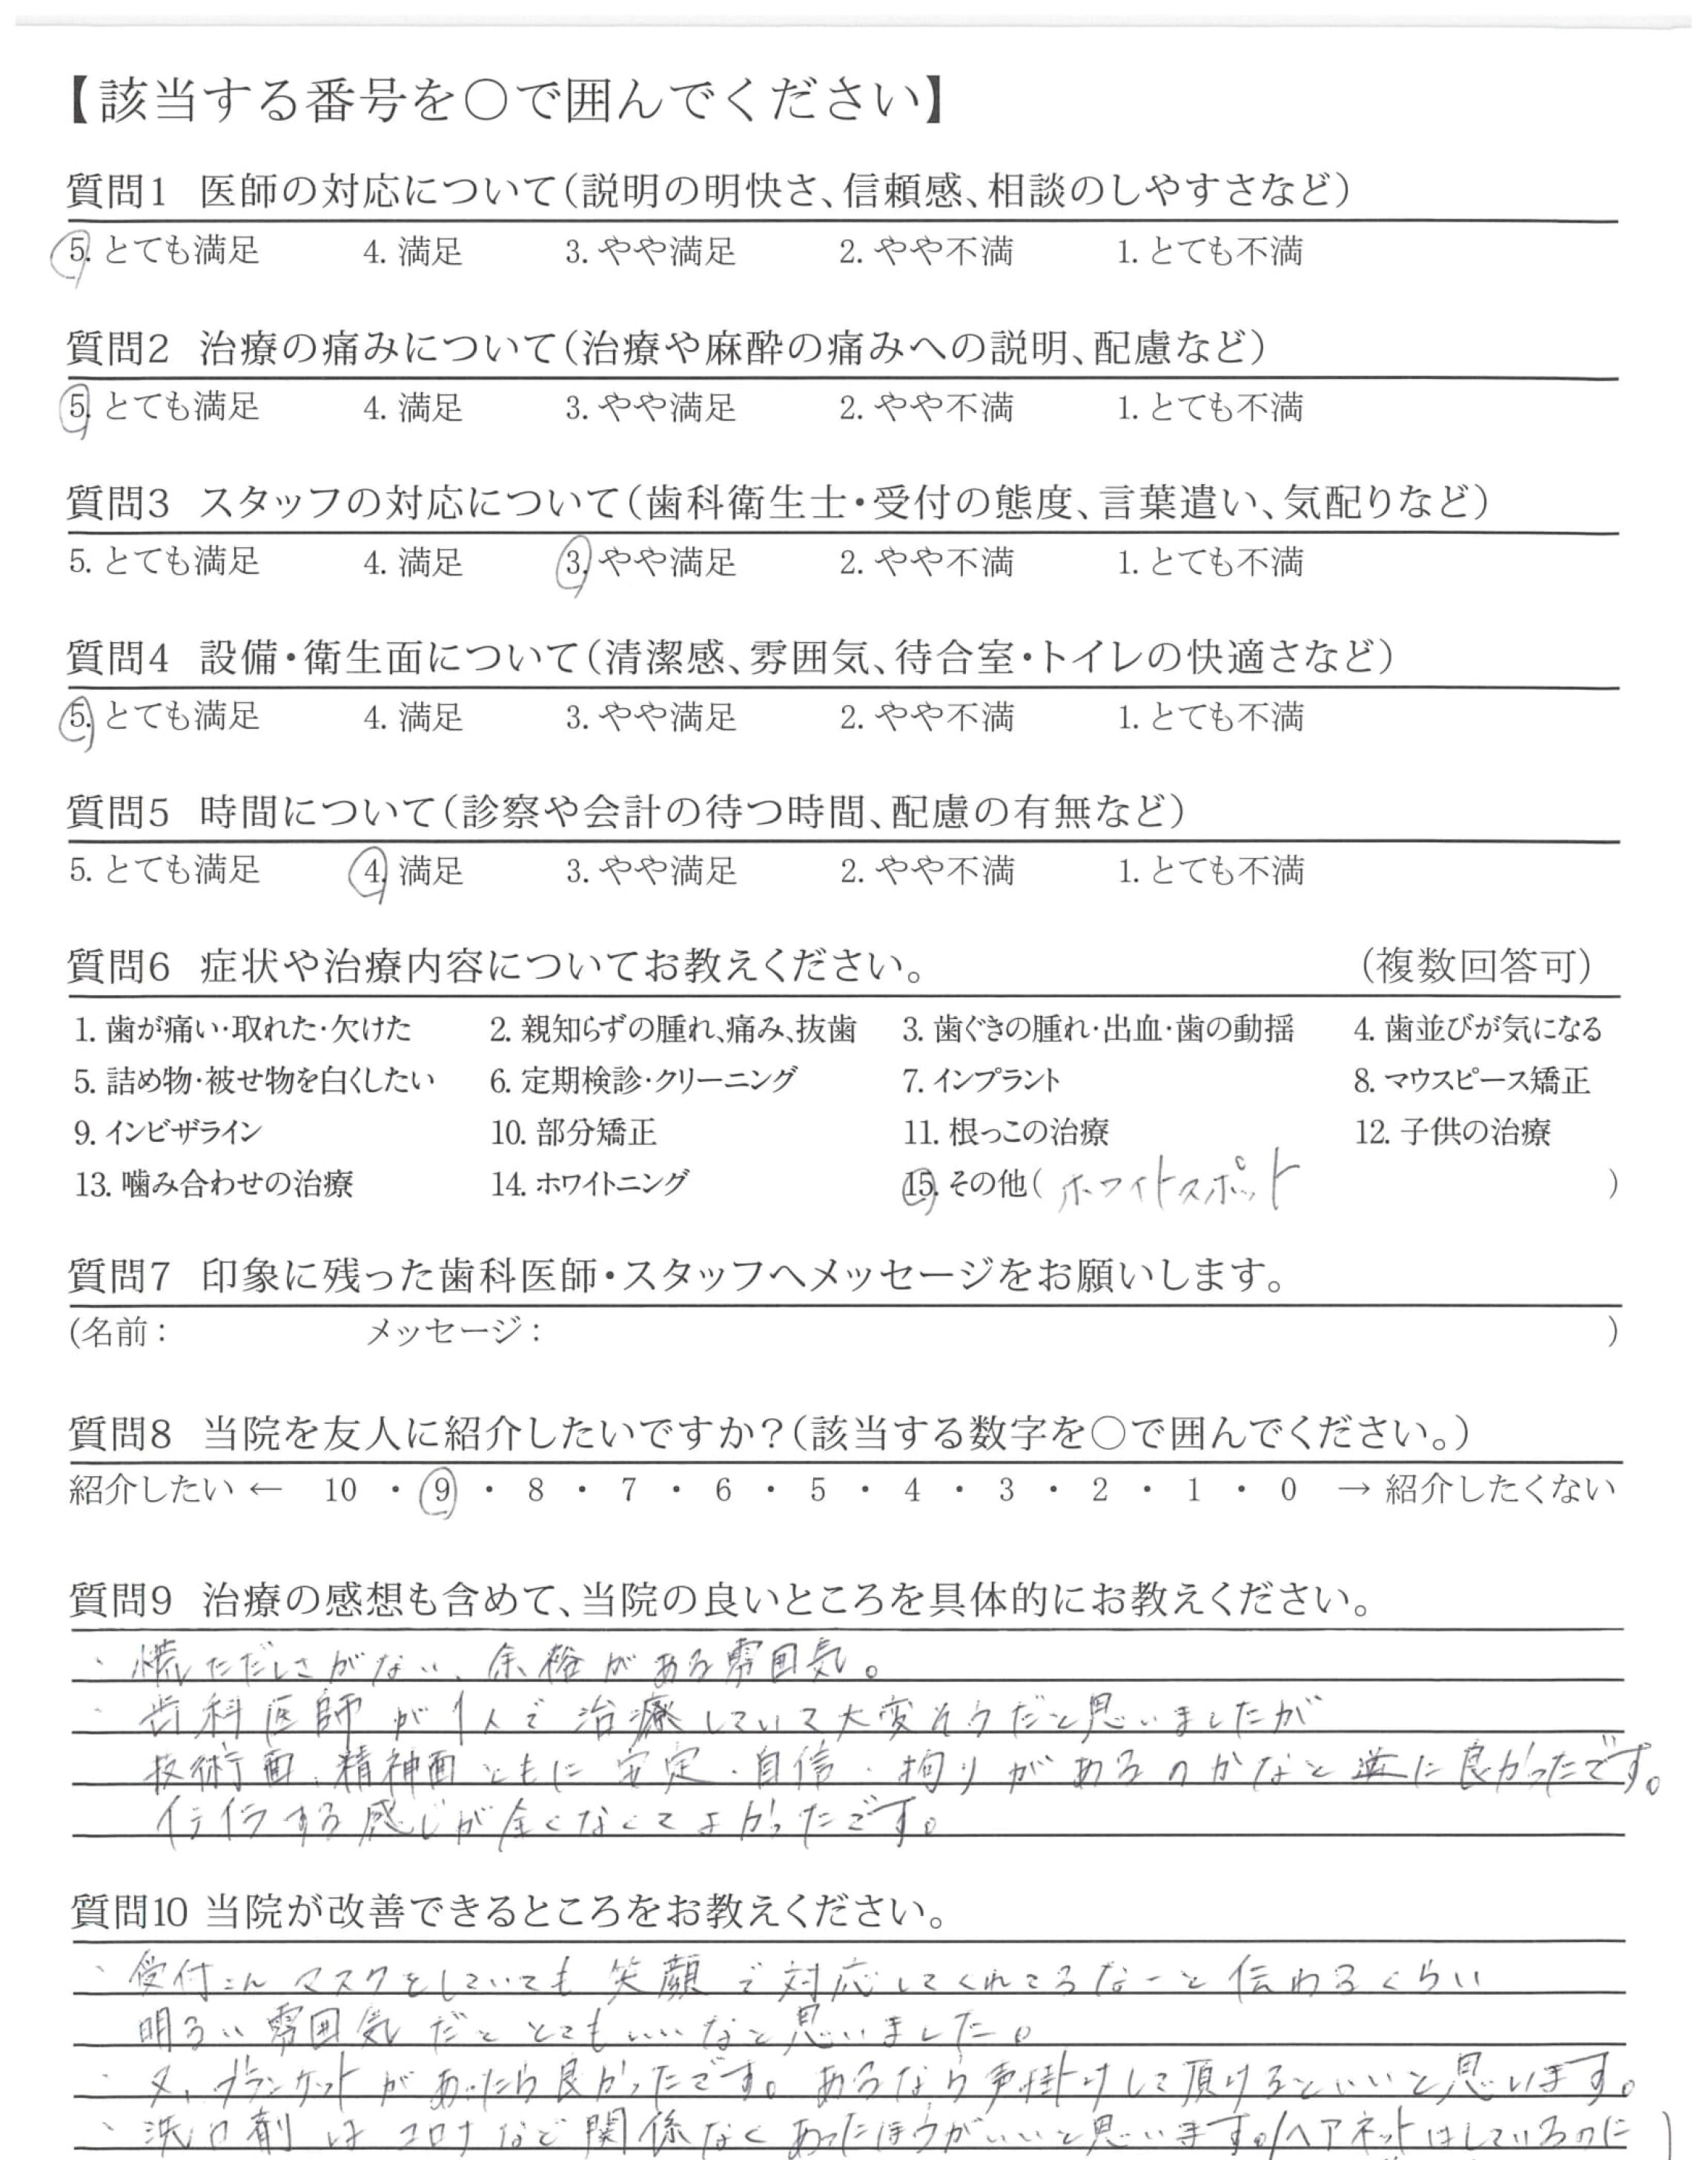 【該当する番号を○で囲んでください】
質問1 医師の対応について(説明の明快さ、信頼感、相談のしやすさなど)
5. とても満足 4. 満足 3. やや満足 2. やや不満 1. とても不満
質問2 治療の痛みについて(治療や麻酔の痛みへの説明、配慮など)
5. とても満足 4. 満足 3. やや満足 2. やや不満 1. とても不満
質問3 スタッフの対応について(歯科衛生士・受付の態度、言葉遣い、気配りなど)
5. とても満足 4. 満足 3. やや満足 2. やや不満 1. とても不満
質問4 設備・衛生面について(清潔感、雰囲気、待合室・トイレの快適さなど)
5. とても満足 4. 満足 3. やや満足 2. やや不満 1. とても不満
質問5 時間について(診察や会計の待つ時間、配慮の有無など)
5. とても満足 4. 満足 3. やや満足 2. やや不満 1. とても不満
質問6 症状や治療内容についてお教えください。 (複数回答可)
1. 歯が痛い・取れた・欠けた 2. 親知らずの腫れ、痛み、抜歯 3. 歯ぐきの腫れ・出血・歯の動揺 4. 歯並びが気になる
5. 詰め物・被せ物を白くしたい 6. 定期検診・クリーニング 7. インプラント 8. マウスピース矯正
9. インビザライン 10. 部分矯正 11. 根っこの治療 12. 子供の治療
13. 噛み合わせの治療 14. ホワイトニング 15. その他( ホワイトスポット )
質問7 印象に残った歯科医師・スタッフへメッセージをお願いします。
(名前: メッセージ: )
質問8 当院を友人に紹介したいですか?(該当する数字を○で囲んでください。)
紹介したい ← 10 ・ 9 ・ 8 ・ 7 ・ 6 ・ 5 ・ 4 ・ 3 ・ 2 ・ 1 ・ 0 → 紹介したくない
質問9 治療の感想も含めて、当院の良いところを具体的にお教えください。
・慌ただしさがない、余裕がある雰囲気。
・歯科医師が1人で治療していて大変そうだと思いましたが
技術面、精神面ともに安定・自信・拘りがあるのかなと逆に良かったです。
イライラする感じが全くなくてよかったです。
質問10 当院が改善できるところをお教えください。
・受付さん マスクをしていても笑顔で対応してくれてるなーと伝わるくらい
明るい雰囲気だととてもいいなと思いました。
・又、ブランケットがあったら良かったです。あるなら声掛けして頂けるといいと思います。
・洗口剤はコロナなど関係なくあったほうがいいと思います。/ヘアネットはしているのに